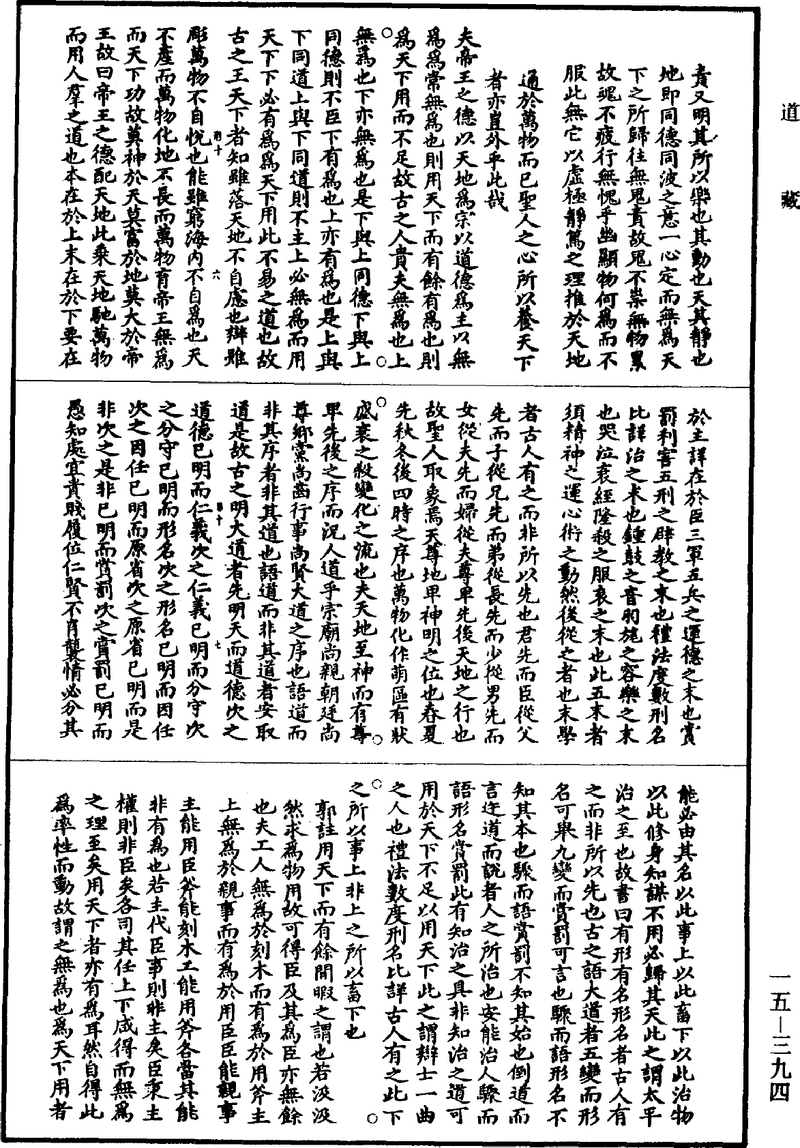 道藏
責又明其所以樂也其動也天其靜也
地即同德同波之意一心定而無爲天
下之所歸往無鬼責故鬼不祟無物累
故魂不疲行無愧乎幽顯物何爲而不
服此無它以虛極靜篤之理推於天地
通於萬物而已聖人之心所以養天下
者亦豈外乎此哉
夫帝王之德以天地爲宗以道德爲主以無
爲爲常無爲也則用天下而有餘有爲也則
爲天下用而不足故古之人貴夫無爲也上
無爲也下亦無爲也是下與上同德下與上
同德則不臣下有爲也上亦有爲也是上與
下同道上與下同道則不主上必無爲而用
天下下必有爲爲天下用此不易之道也故
古之王天下者知雖落天地不自慮也辯雖
彫萬物不自悅也能雖窮海內不自爲也天
不產而萬物化地不長而萬物育帝王無爲
而天下功故莫神於天莫富於地莫大於帝
王故曰帝王之德配天地此乘天地馳萬物
而用人羣之道也本在於上末在於下要在
於主詳在於臣三軍五兵之運德之末也賞
罰利害五刑之辟教之末也禮法度數刑名
比詳治之末也鍾鼓之音羽旄之容樂之末
也哭泣衰絰隆殺之服哀之末也此五末者
須精神之運心術之動然後從之者也末學
者古人有之而非所以先也君先而臣從父
先而子從兄先而弟從長先而少從男先而
女從夫先而婦從夫尊卑先後天地之行也
故聖人取象焉天尊地卑神明之位也春夏
先秋冬後四時之序也萬物化作萌區有狀
盛衰之殺變化之流也夫天地至神而有尊
卑先後之序而況人道乎宗廟尚親朝廷尚
尊鄉黨尚齒行事尚賢大道之序也語道而
非其序者非其道也語道而非其道者安取
道是故古之明大道者先明天而道德次之
道德已明而仁義次之仁義已明而分守次
之分守已明而形名次之形名已明而因任
次之因任已明而原省次之原省已明而是
非次之是非已明而賞罰次之賞罰已明而
愚知處宜貴賤履位仁賢不肖襲情必分其
能必由其名以此事上以此畜下以此治物
以此修身知謀不用必歸其天此之謂太平
治之至也故書曰有形有名形名者古人有
之而非所以先也古之語大道者五變而形
名可舉九變而賞罰可言也驟而語形名不
知其本也驟而語賞罰不知其始也倒道而
言迕道而說者人之所治也安能治人驟而
語形名賞罰此有知治之具非知治之道可
用於天下不足以用天下此之謂辯士一曲
之人也禮法數度刑名比詳古人有之此下
之所以事上非上之所以畜下也
郭註用天下而有餘閒暇之謂也若汲汲
然求爲物用故可得臣及其爲臣亦無餘
也夫工人無爲於刻木而有爲於用斧主
上無爲於親事而有爲於用臣臣能親事
主能用臣斧能刻木工能用斧各當其能
非有爲也若主代臣事則非主矣臣秉主
權則非臣矣各司其任上下咸得而無爲
之理至矣用天下者亦有爲耳然自得此
爲率性而動故謂之無爲也爲天下用者
一五—三九四